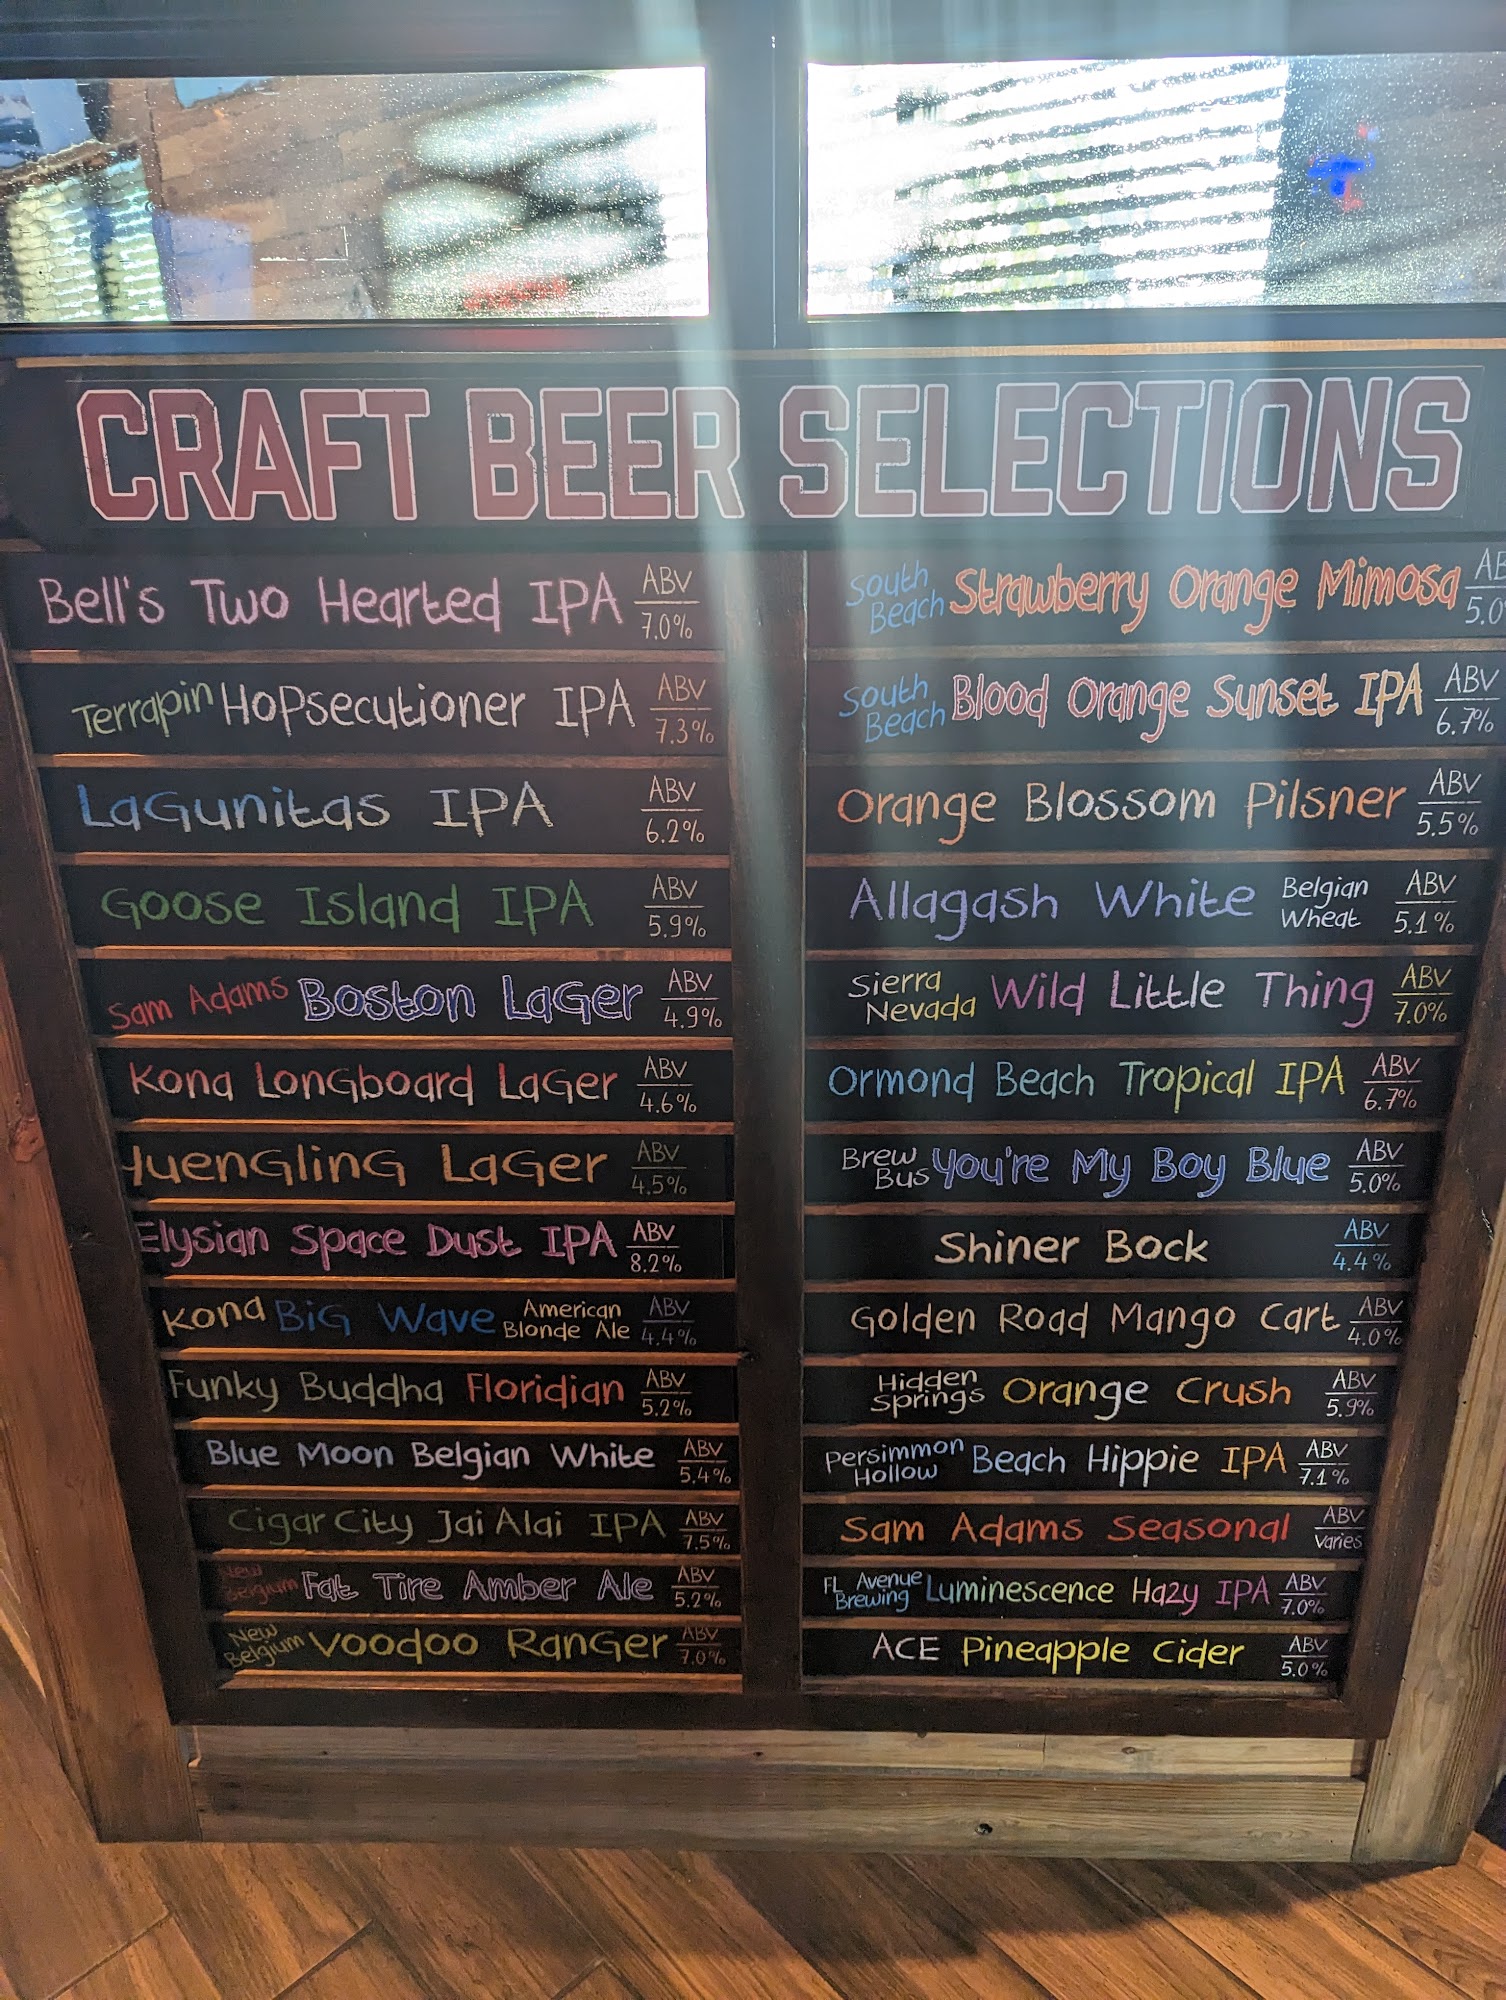 CRAFT BEER SELECTIONS
Bell's Two Hearted IPA ABV 7.0%
Terrapin HoPsecutioner IPA ABV 7.3%
LaGunitas IPA ABV 6.2%
Goose Island IPA ABV 5.9%
Sam Adams Boston LaGer ABV 4.9%
Kona LonGboard LaGer ABV 4.6%
YuenGlinG LaGer ABV 4.5%
Elysian Space Dust IPA ABV 8.2%
Kona BiG Wave American Blonde Ale ABV 4.4%
Funky Buddha Floridian ABV 5.2%
Blue Moon Belgian White ABV 5.4%
Cigar City Jai Alai IPA ABV 7.5%
New Belgium Fat Tire Amber Ale ABV 5.2%
New Belgium Voodoo RanGer ABV 7.0%
South Beach Strawberry Orange Mimosa AB 5.0
South Beach Blood Orange Sunset IPA ABV 6.7%
Orange Blossom Pilsner ABV 5.5%
Allagash White Belgian Wheat ABV 5.1%
Sierra Nevada Wild Little Thing ABV 7.0%
Ormond Beach Tropical IPA ABV 6.7%
Brew Bus You're My Boy Blue ABV 5.0%
Shiner Bock ABV 4.4%
Golden Road Mango Cart ABV 4.0%
Hidden Springs Orange Crush ABV 5.9%
Persimmon Hollow Beach Hippie IPA ABV 7.1%
Sam Adams Seasonal ABV Varies
FL Avenue Brewing Luminescence Hazy IPA ABV 7.0%
ACE Pineapple Cider ABV 5.0%